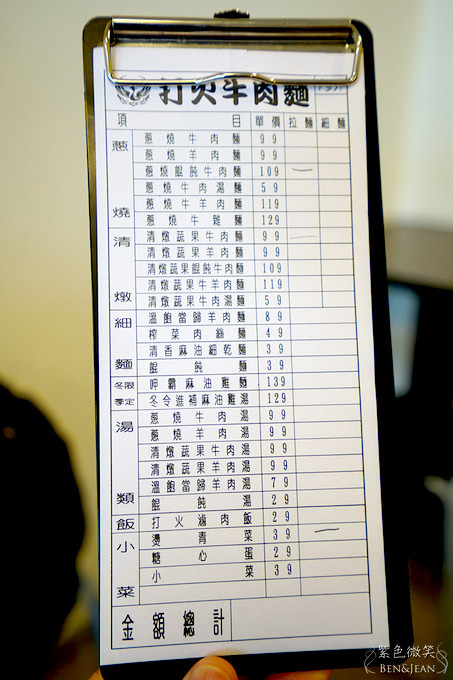 打火牛肉麵
項 目 單價 拉麵 細麵
蔥燒
蔥燒牛肉麵 99
蔥燒羊肉麵 99
蔥燒餛飩牛肉麵 109
蔥燒牛肉湯麵 59
蔥燒牛羊肉麵 119
蔥燒牛雜麵 129
清燉
清燉蔬果牛肉麵 99
清燉蔬果羊肉麵 99
清燉蔬果餛飩牛肉麵 109
清燉蔬果牛羊肉麵 119
清燉蔬果牛肉湯麵 59
細麵
溫飽當歸羊肉麵 89
榨菜肉絲麵 49
清香麻油細乾麵 39
餛飩麵 39
冬限季定
呷霸麻油雞麵 139
冬令進補麻油雞湯 129
湯類
蔥燒牛肉湯 99
蔥燒羊肉湯 99
清燉蔬果牛肉湯 99
清燉蔬果羊肉湯 99
溫飽當歸羊肉湯 79
餛飩湯 29
飯
打火滷肉飯 29
小菜
燙青菜 39
糖心蛋 29
小菜 39
金額總計
紫色微笑
BEN&JEAN